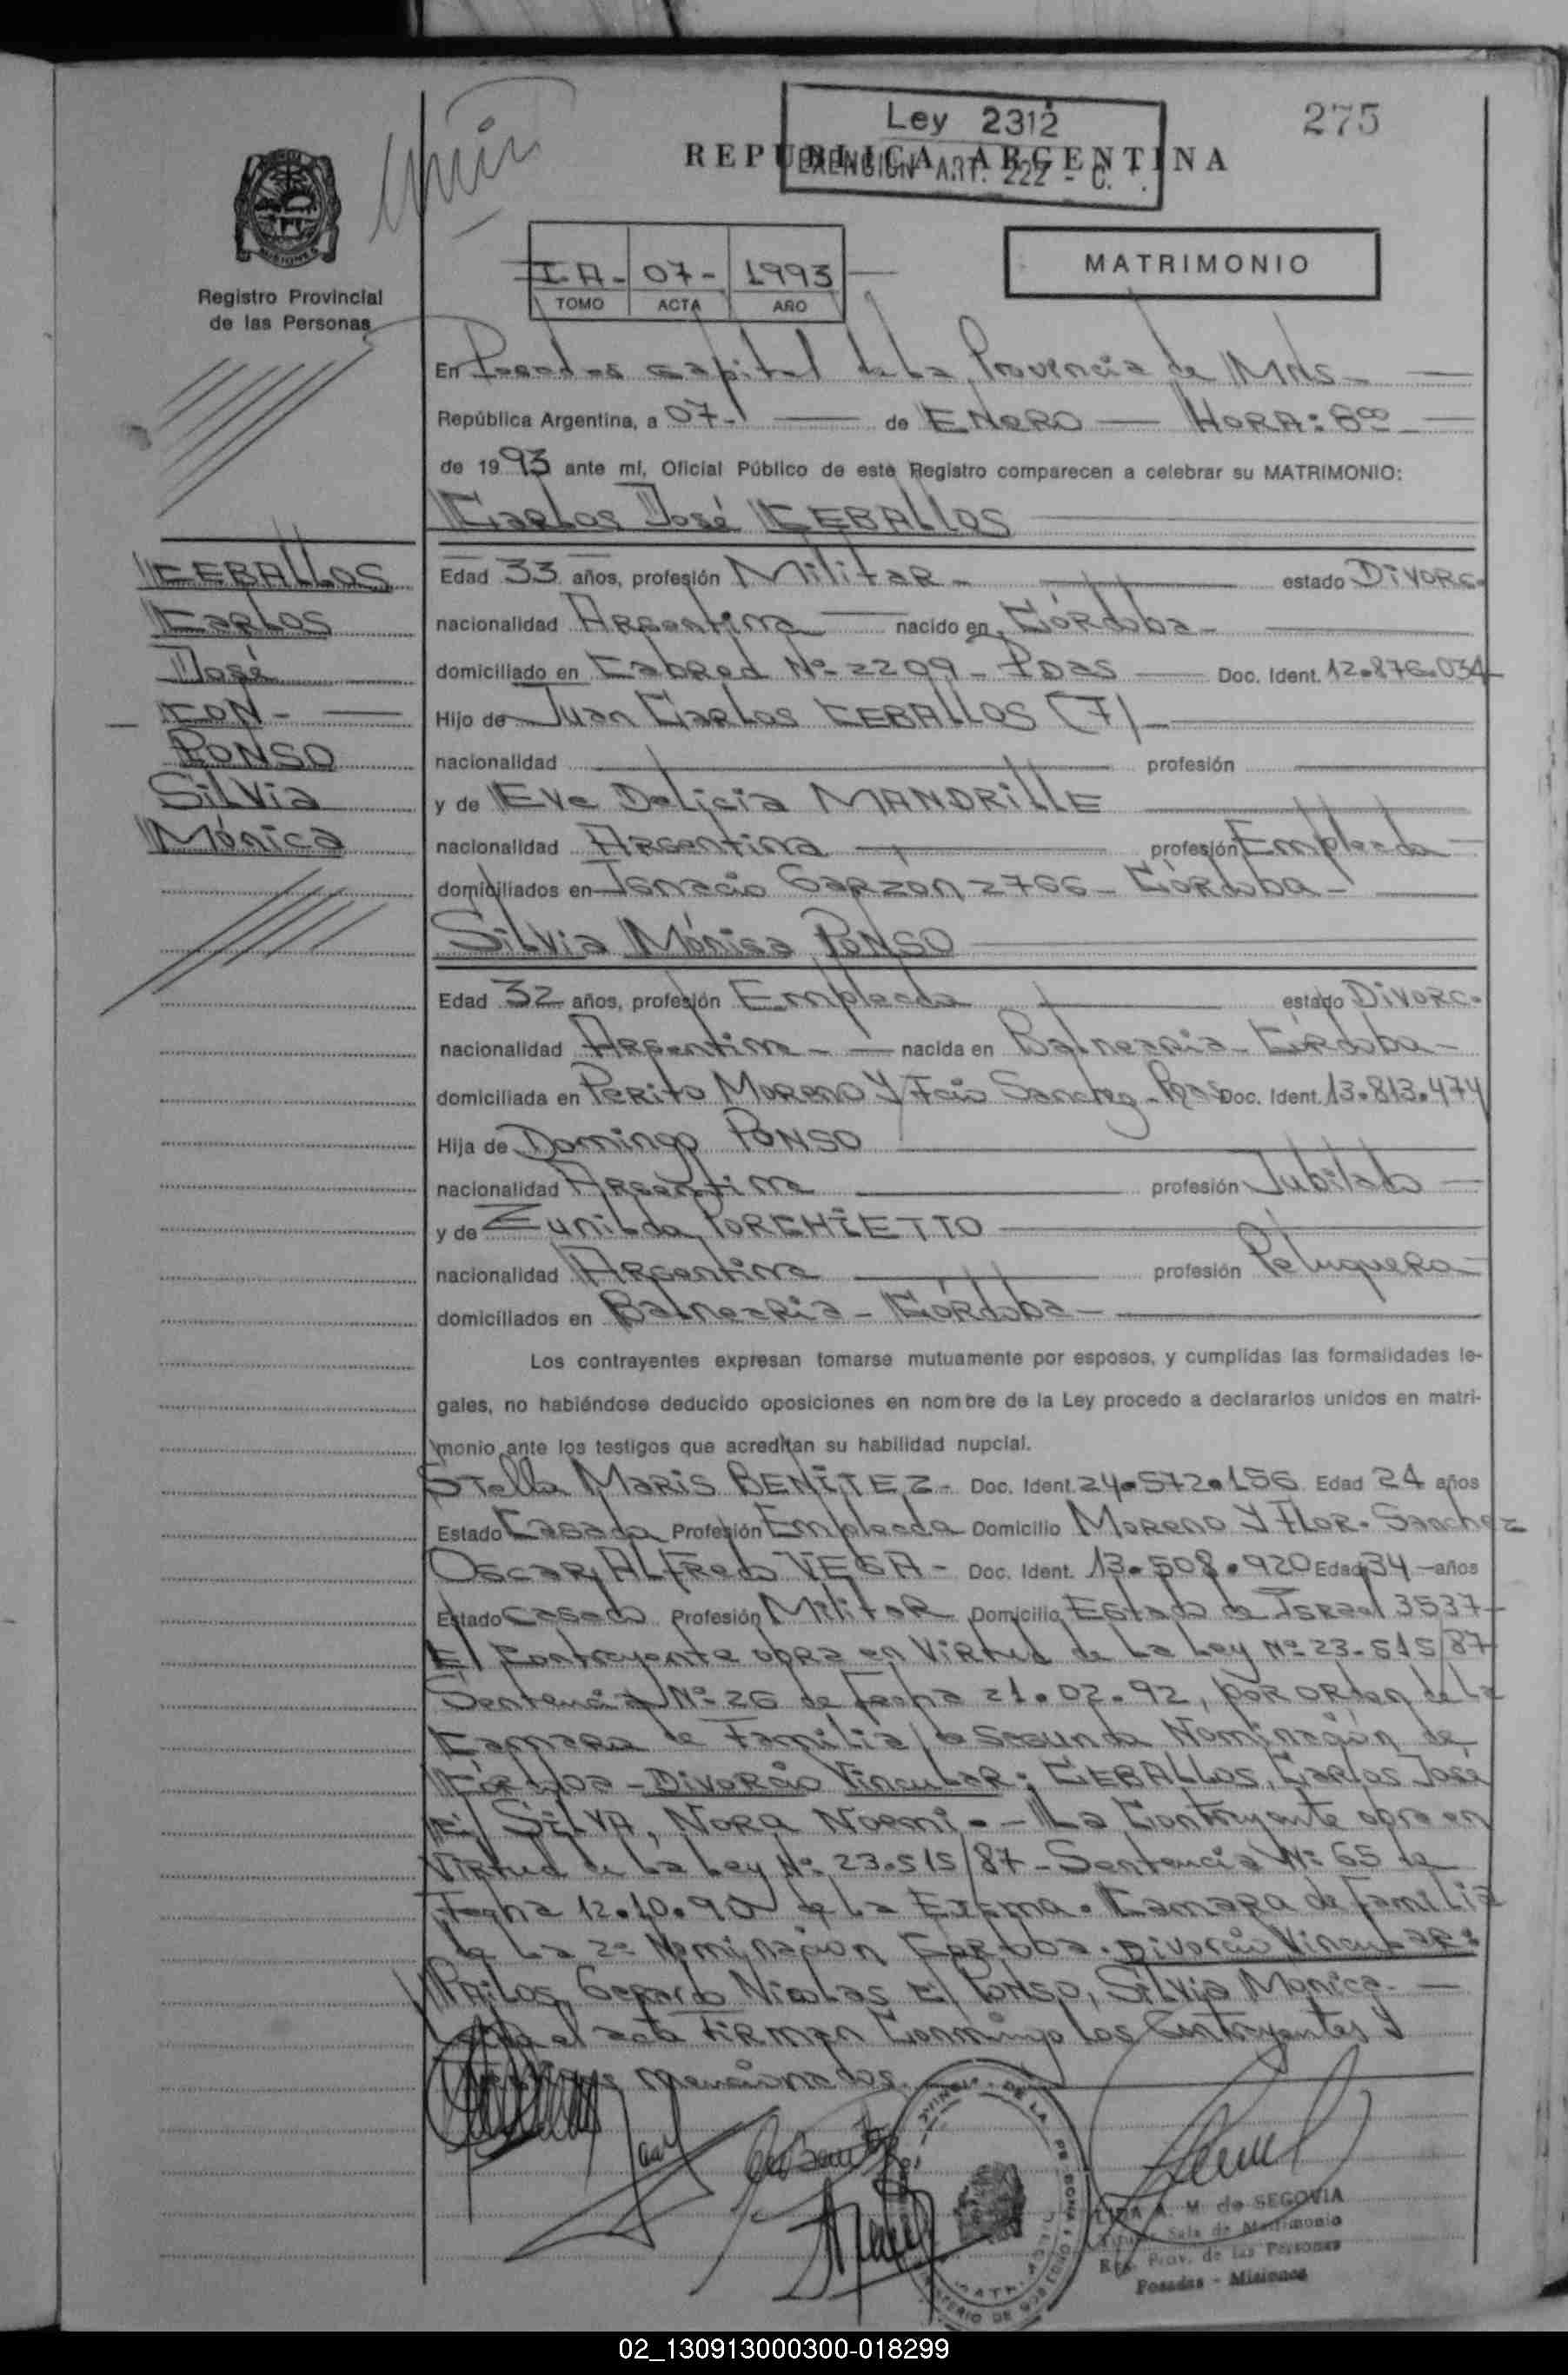 275
Ley 2312
REPUBLICA ARGENTINA
EXENCION ART. 222 - C.
MISIONES
Registro Provincial
de las Personas
I A - 07 - 1993
TOMO ACTA AÑO
MATRIMONIO
En Posadas capital de la Provincia de Mnes -
República Argentina, a 07 - de ENERO HORA: 8⁰⁰ -
de 1993 ante mí, Oficial Público de este Registro comparecen a celebrar su MATRIMONIO:
Carlos José CEBALLOS
CEBALLOS
Carlos
José
CON -
PONSO
Silvia
Mónica
Edad 33 años, profesión Militar - estado Divorc.
nacionalidad Argentina nacido en Córdoba -
domiciliado en Cabred Nº 2209 - Pdas Doc. Ident. 12.876.034
Hijo de Juan Carlos CEBALLOS (7) -
nacionalidad profesión
y de Eve Delicia MANDRILLE
nacionalidad Argentina profesión Empleada
domiciliados en Ignacio Garzon 2766 - Córdoba -
Silvia Mónica PONSO
Edad 32 años, profesión Empleada estado Divorc.
nacionalidad Argentina - nacida en Balnearia - Córdoba -
domiciliada en Perito Moreno y Fcio Sanchez - Pdas Doc. Ident. 13.813.474
Hija de Domingo PONSO
nacionalidad Argentina profesión Jubilado
y de Zunilda PORCHIETTO
nacionalidad Argentina profesión Peluquera
domiciliados en Balnearia - Córdoba -
Los contrayentes expresan tomarse mutuamente por esposos, y cumplidas las formalidades le-
gales, no habiéndose deducido oposiciones en nombre de la Ley procedo a declararlos unidos en matri-
monio ante los testigos que acreditan su habilidad nupcial.
Stella Maris BENITEZ - Doc. Ident. 24.572.156 Edad 24 años
Estado Casada Profesión Empleada Domicilio Moreno y Flor. Sanchez
Oscar Alfredo VEGA - Doc. Ident. 13.508.920 Edad 34 años
Estado casado Profesión Militar Domicilio Estado de Israel 3537
El Contrayente obra en Virtud de La Ley Nº 23.515/87
Sentencia Nº 26 de Fecha 21.02.92, por orden de la
Camara de Familia de Segunda Nominación de
Córdoba - Divorcio Vincular: CEBALLOS, Carlos José
c/ SILVA, Nora Noemi. - La Contrayente obra en
Virtud de La Ley Nº 23.515/87 - Sentencia Nº 65 de
Fecha 12.10.90 de la Exema. Camara de Familia
de La 2º Nominacion Cordoba. Divorcio Vincular:
Gerardo Nicolas c/ Ponso, Silvia Monica. -
el acta Firman Conmigo los Contrayentes y
mencionados.
LIDA A. M. de SEGOVIA
Sala de Matrimonio
Reg. Prov. de las Personas
Posadas - Misiones
02_130913000300-018299